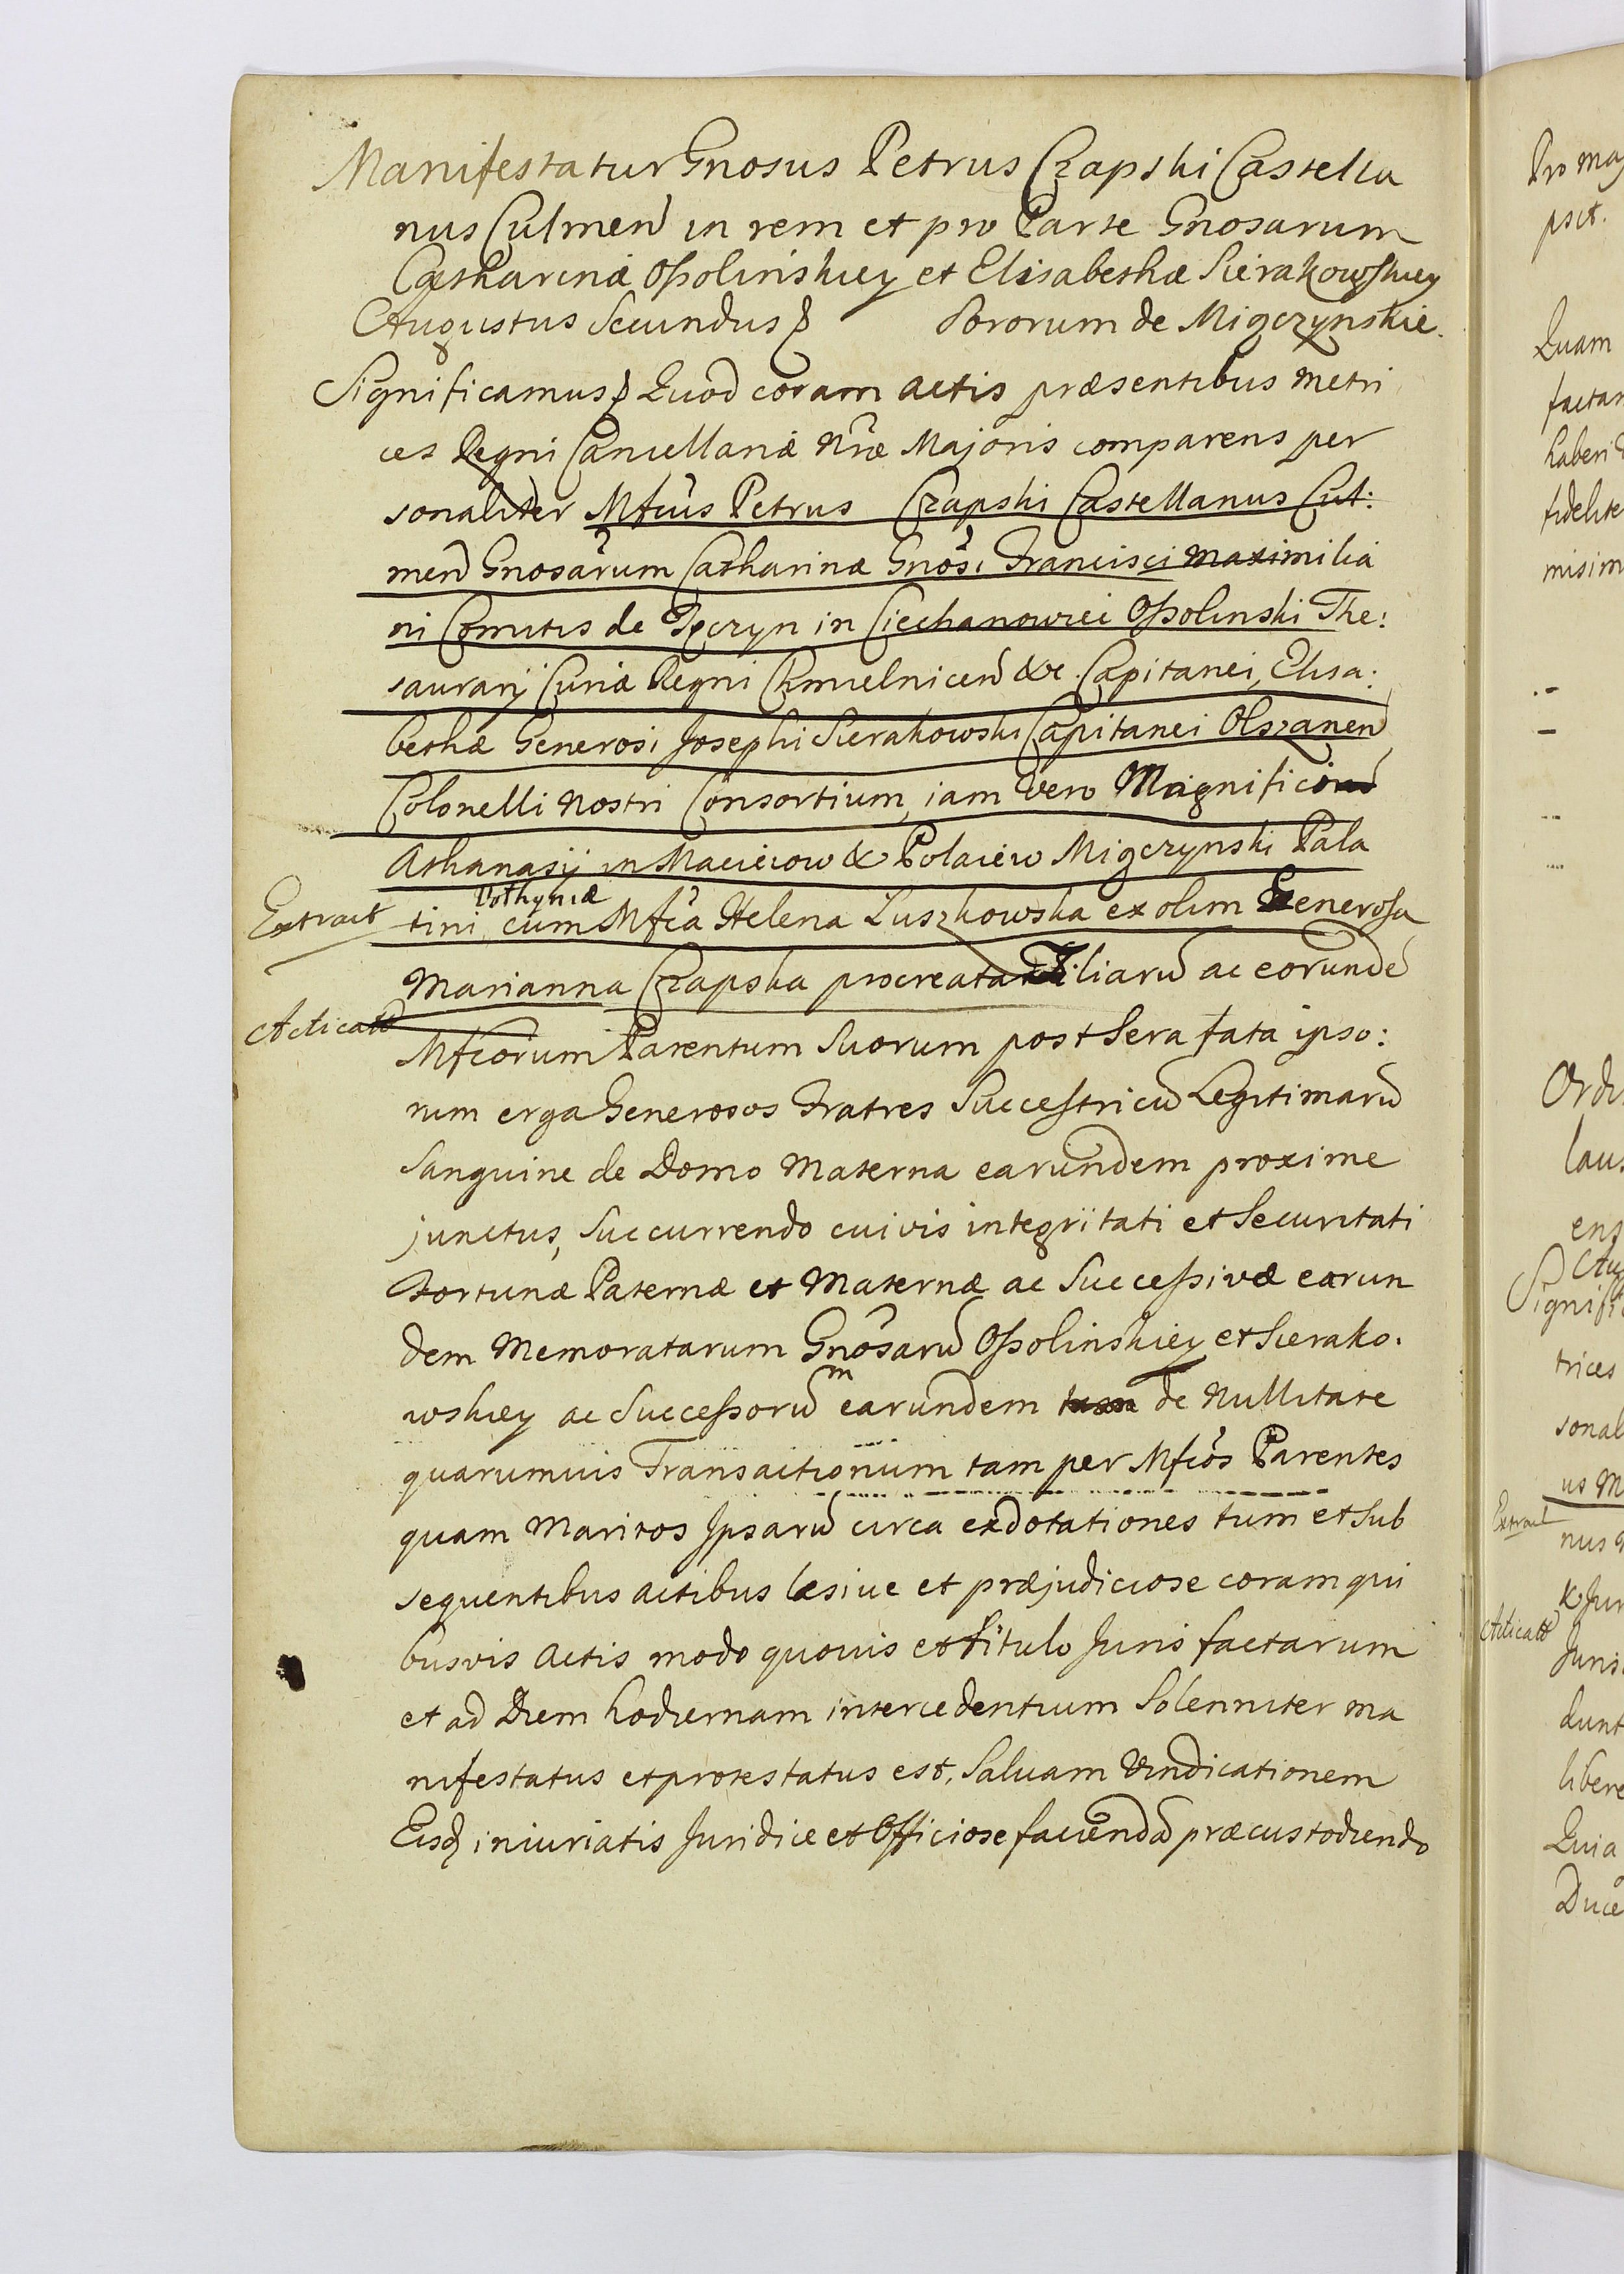 Manifestatur Gnosus Petrus Czapski Castella
nus Culmen in rem et pro Parte Gnosarum
Catharinæ Ossolinskiey et Elisabethæ Sierakowskiey
Augustus Secundus Sororum de Miączynskie.
Significamus Quod coram actis præsentibus Metri
ces Regni Cancellariæ Nræ Majoris comparens per
sonaliter Mfcus Petrus Czapski Castellanus Cul:
men Gnosarum Catharinæ Gnosi Francisci Maximilia
ni Comitis de Tęczyn in Ciechanowiec Ossolinski The:
saurarij Curiæ Regni Chmielnicen &c. Capitanei, Elisa:
bethæ Generosi Josephi Sierakowski Capitanei Olszanen
Colonelli Nostri Consortium, iam vero Magnificum
Athanasij in Maciiow & Polaiew Miączynski Pala
Extract tini Volhyniæ cum Mfca Helena Luszkowska ex olim Generosa
Marianna Czapska procreata Filiaru ac eorunde
Acticatt
Mfcorum Parentum Suorum post Sera fata ipso:
rum erga Generosos Fratres Successtricu Legitimaru
Sanguine de Domo Materna earundem proxime
junctus, Succurrendo cuivis integritati et Securitati
Fortunæ Paternæ et Maternæ ac Successivæ earun
dem Memoratarum Gnosaru Ossolinskiey et Sierako.
wskiey ac Successoru earundem de Nullitate
quarumvis Transactionum tam per Mfcos Parentes
quam Maritos Ipsaru circa exdotationes tum et Sub
sequentibus actibus læsive et præjudiciose coram qui
busvis Actis modo quovis et titulo Juris factarum
et ad Diem hodiernam intercedentium Solenniter ma
nifestatus et protestatus est, Salvam Vindicationem
Eisq iniuriatis Juridice et Officiose faciendã præcustodiendo
Quam
pset.
haberi
trices
Extract
Acticatt
dunt
Quia